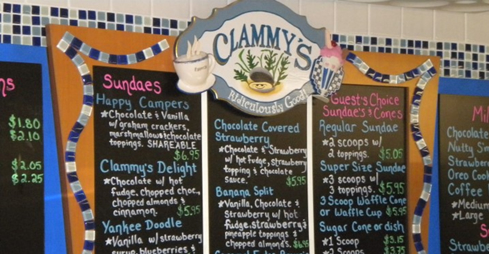 ms
$1.80
$2.10
$2.05
$2.25
CLAMMY'S
Ridiculously Good!
Sundaes
Happy Campers
*Chocolate & Vanilla
w/ graham crackers,
marshmallow & chocolate
toppings. SHAREABLE
$6.95
Clammy's Delight
*Chocolate w/ hot
fudge, chopped choc.,
chopped almonds &
cinnamon. $5.95
Yankee Doodle
*Vanilla w/ strawberry
syrup, blueberries &
Chocolate Covered
Strawberry
*Chocolate & Strawberry
w/ hot fudge, strawberry
topping & chocolate
sauce. $5.95
Banana Split
*Vanilla, Chocolate &
Strawberry w/ hot
fudge, strawberry &
pineapple toppings &
chopped almonds. $6.95
Guest's Choice
Sundae's & Cones
Regular Sundae
*2 scoops w/
2 toppings. $5.05
Super Size Sundae
*3 scoops w/
3 toppings. $5.95
3 Scoop Waffle Cone
or Waffle Cup $5.95
Sugar Cone or dish
*1 Scoop $3.15
*2 Scoops $3.75
Mil
Chocolate
Nutty Sm
Strawberr
Oreo Cook
Coffee
*Medium
*Large
S
Straw